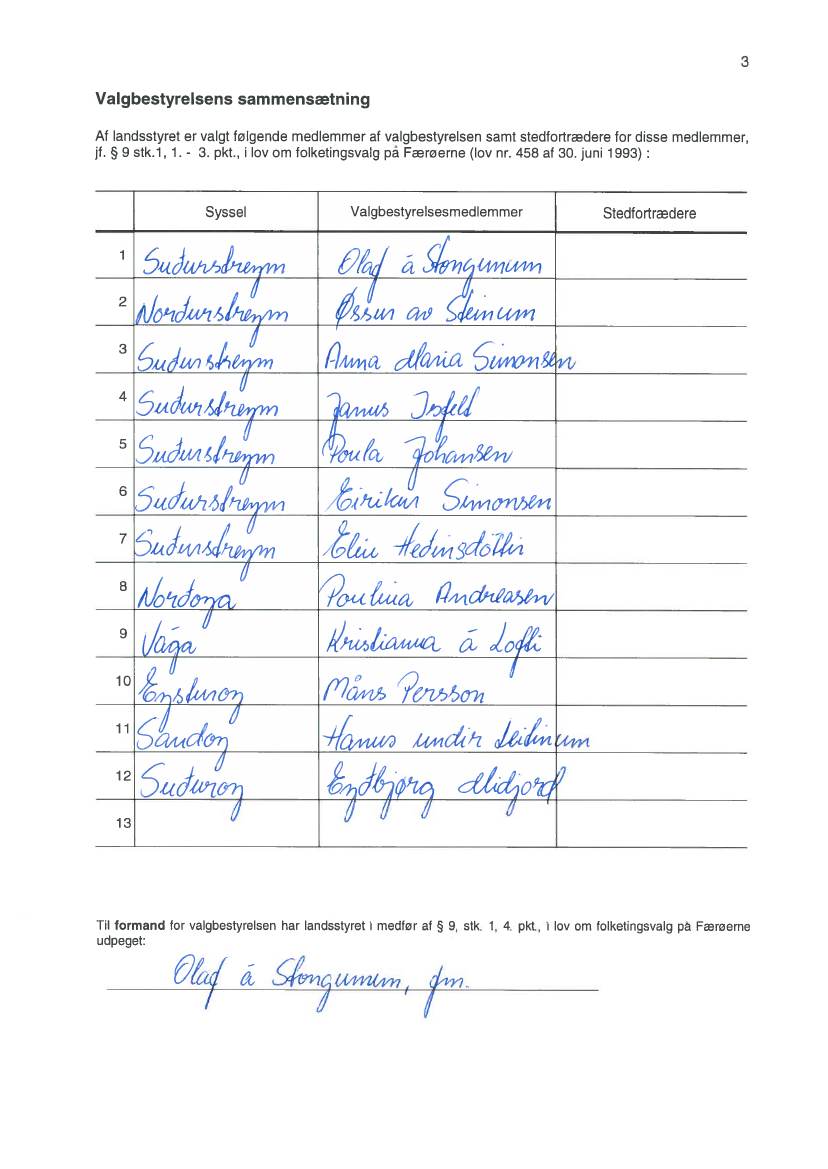 3
Valgbestyrelsens sammensætning
Af landsstyret er valgt følgende medlemmer af valgbestyrelsen samt stedfortrædere for disse medlemmer,
jf. § 9 stk.1, 1. - 3. pkt., i lov om folketingsvalg på Færøerne (lov nr. 458 af 30. juni 1993) :
Syssel Valgbestyrelsesmedlemmer Stedfortrædere
1 Suðurstreym Olaf á Stongunum
2 Norðurstreym Øssur av Steinum
3 Suðurstreym Anna Maria Simonsen
4 Suðurstreym Janus Isfeld
5 Suðurstreym Poula Johansen
6 Suðurstreym Eirikur Simonsen
7 Suðurstreym Elin Heðinsdóttir
8 Norðoya Paulina Andreasen
9 Vága Kristianna á Lofti
10 Eysturoy Måns Persson
11 Sandoy Hanus undir Leitinum
12 Suðuroy Eyðbjørg Midjord
13
Til formand for valgbestyrelsen har landsstyret i medfør af § 9, stk. 1, 4. pkt., i lov om folketingsvalg på Færøerne
udpeget:
Olaf á Stongunum, fm.